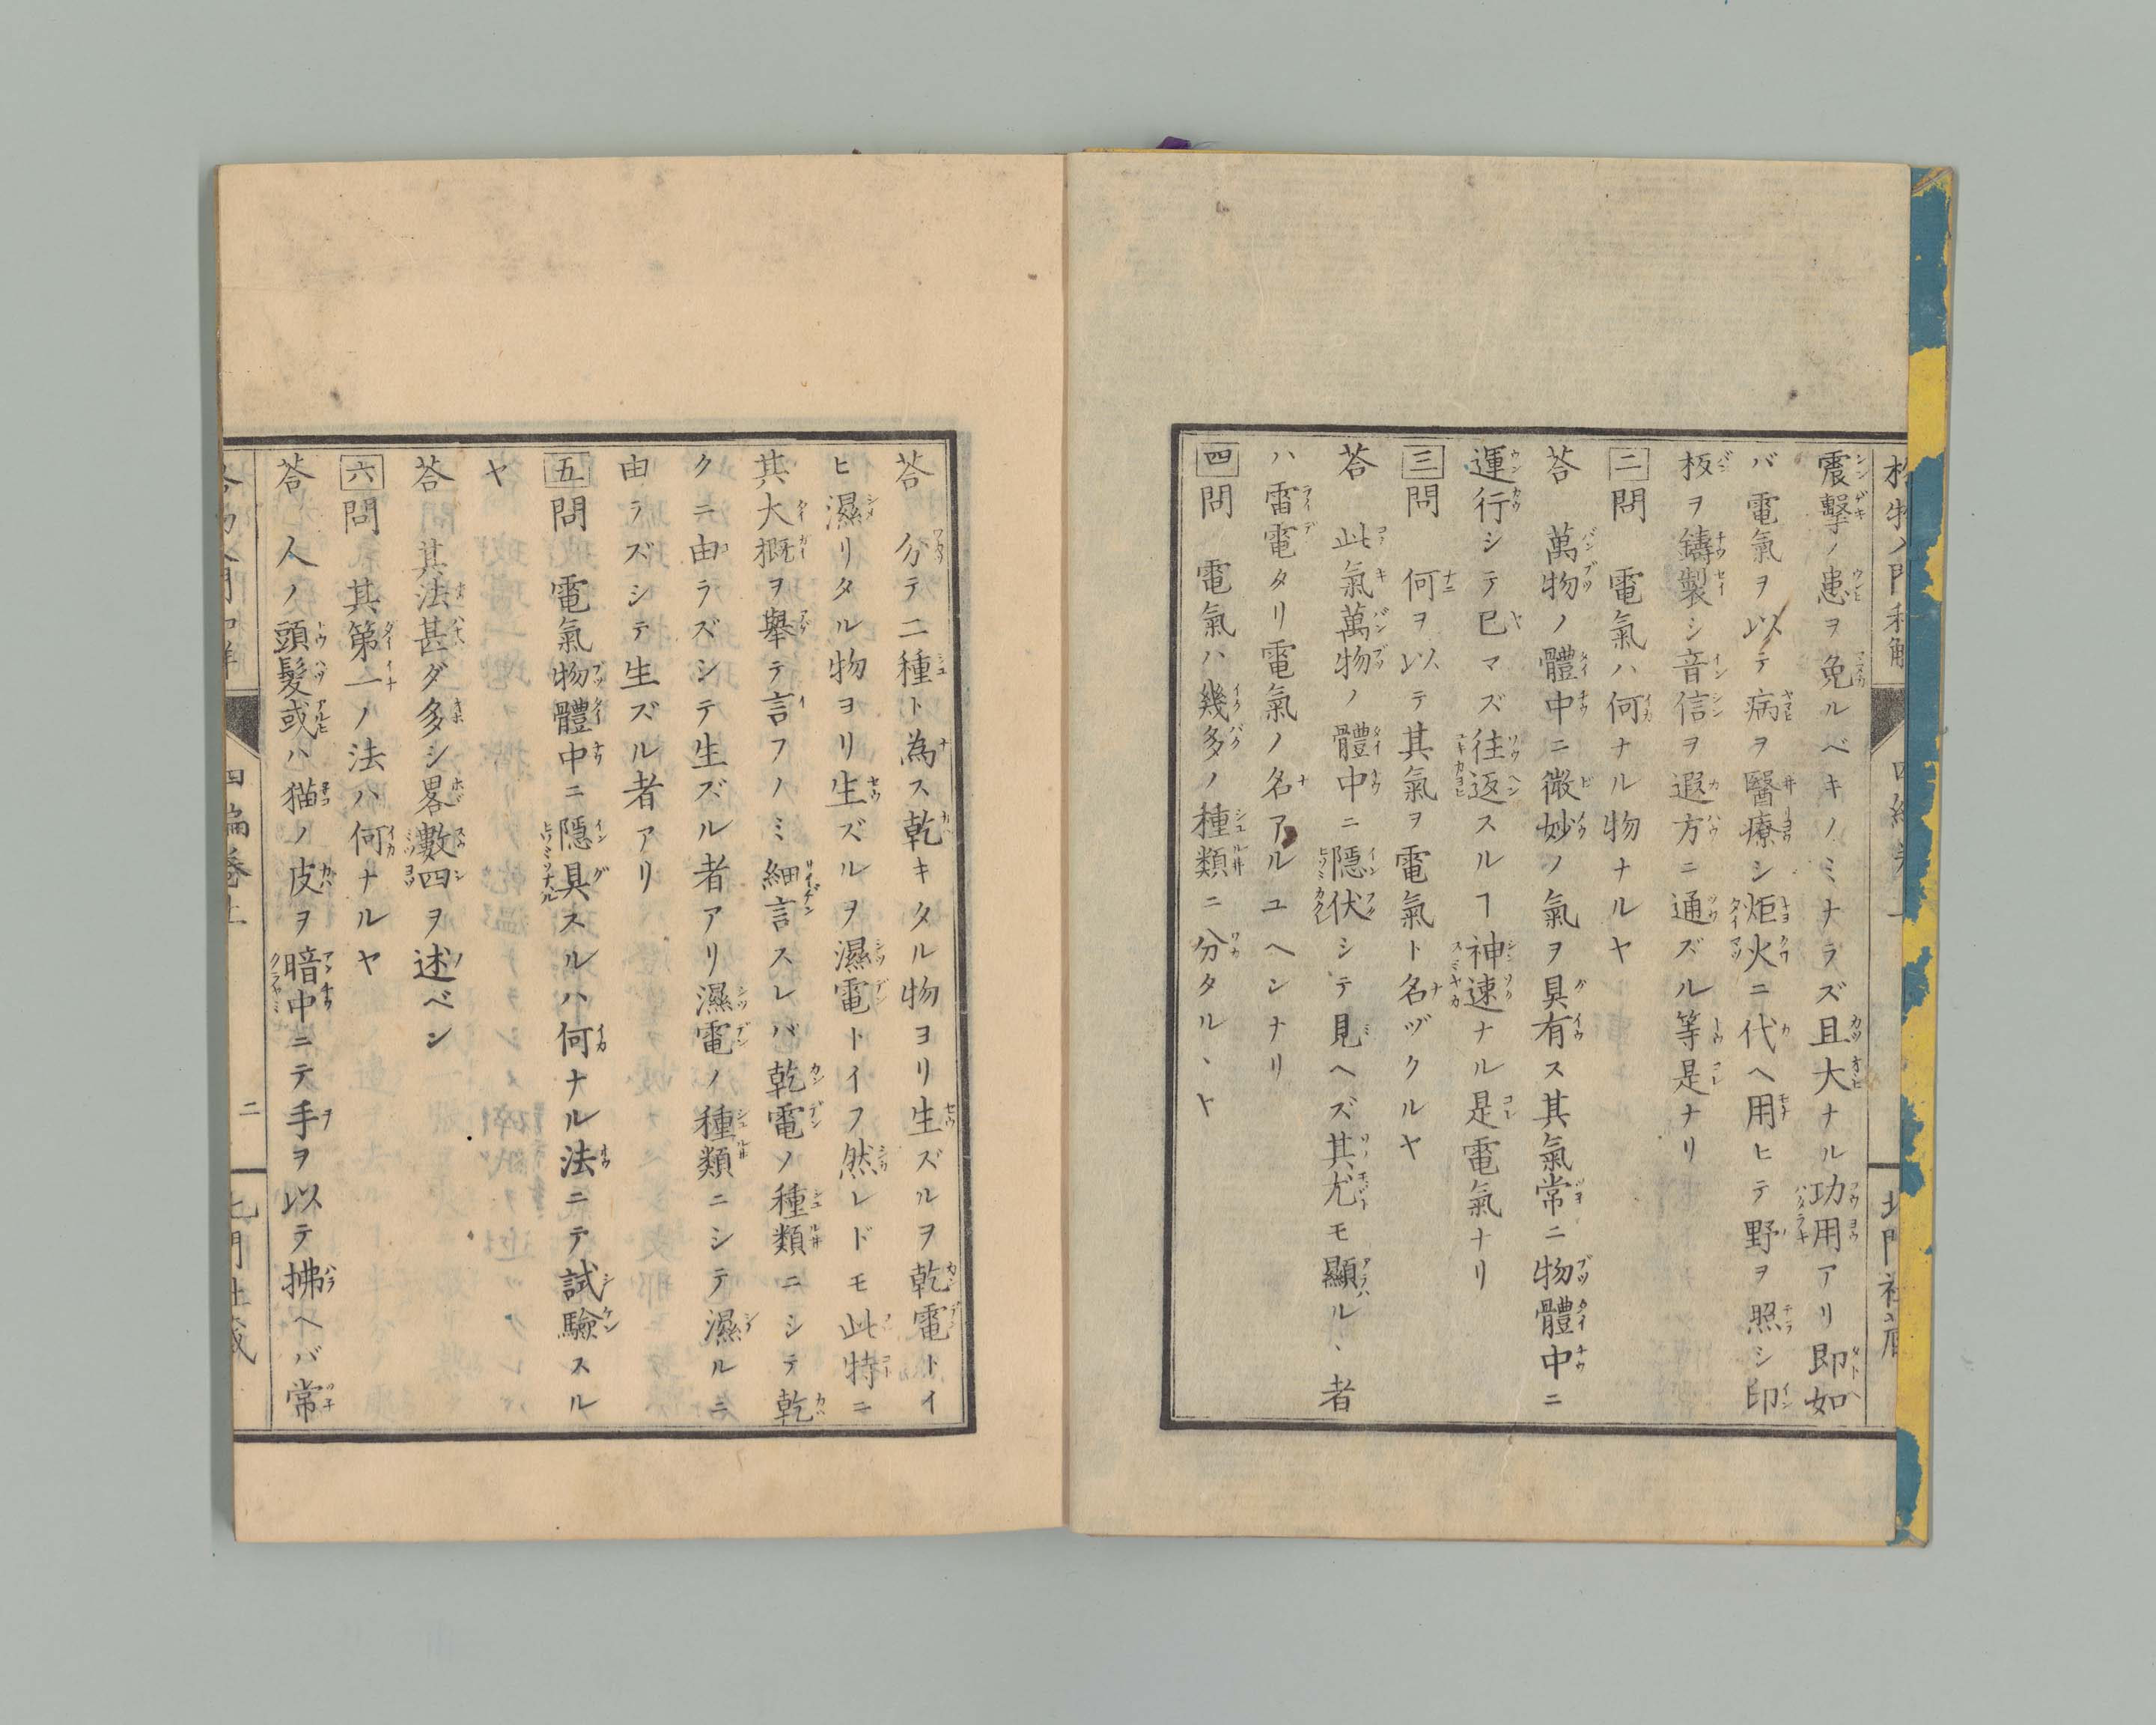 震擊ノ患ヲ免ルベキノミナラズ且大ナル功用アリ即如
バ電氣ヲ以テ病ヲ醫療シ炬火ニ代ヘ用ヒテ野ヲ照シ印
板ヲ鑄製シ音信ヲ遐方ニ通ズル等是ナリ
二問 電氣ハ何ナル物ナルヤ
荅 萬物ノ體中ニ微妙ノ氣ヲ具有ス其氣常ニ物體中ニ
運行シテ已マズ往返スルヿ神速ナル是電氣ナリ
三問 何ヲ以テ其氣ヲ電氣ト名ヅクルヤ
荅 此氣萬物ノ體中ニ隱伏シテ見ヘズ其尤モ顯ルヽ者
ハ雷電タリ電氣ノ名アルユヘンナリ
四問 電氣ハ幾多ノ種類ニ分タルヽヤ
荅 分テ二種ト為ス乾キタル物ヨリ生ズルヲ乾電トイ
ヒ濕リタル物ヨリ生ズルヲ濕電トイフ然レドモ此特ニ
其大概ヲ舉テ言フノミ細言スレバ乾電ノ種類ニシテ乾
クニ由ラズシテ生ズル者アリ濕電ノ種類ニシテ濕ルニ
由ラズシテ生ズル者アリ
五問 電氣物體中ニ隱具スルハ何ナル法ニテ試驗スル
ヤ
荅 其法甚ダ多シ畧數四ヲ述ベン
六問 其第一ノ法ハ何ナルヤ
荅 人ノ頭髮或ハ猫ノ皮ヲ暗中ニテ手ヲ以テ拂ヘバ常
四編卷上 二